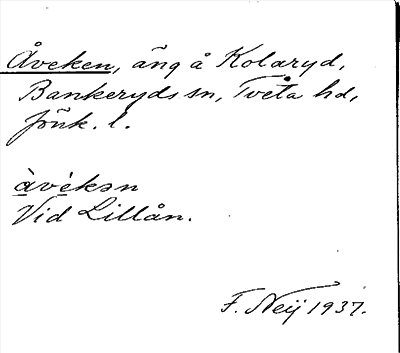 Åveken, äng å Kolaryd,
Bankeryds sn, Tveta hd,
Jönk. l.
àvékən
Vid Lillån.
F. Neij 1937.